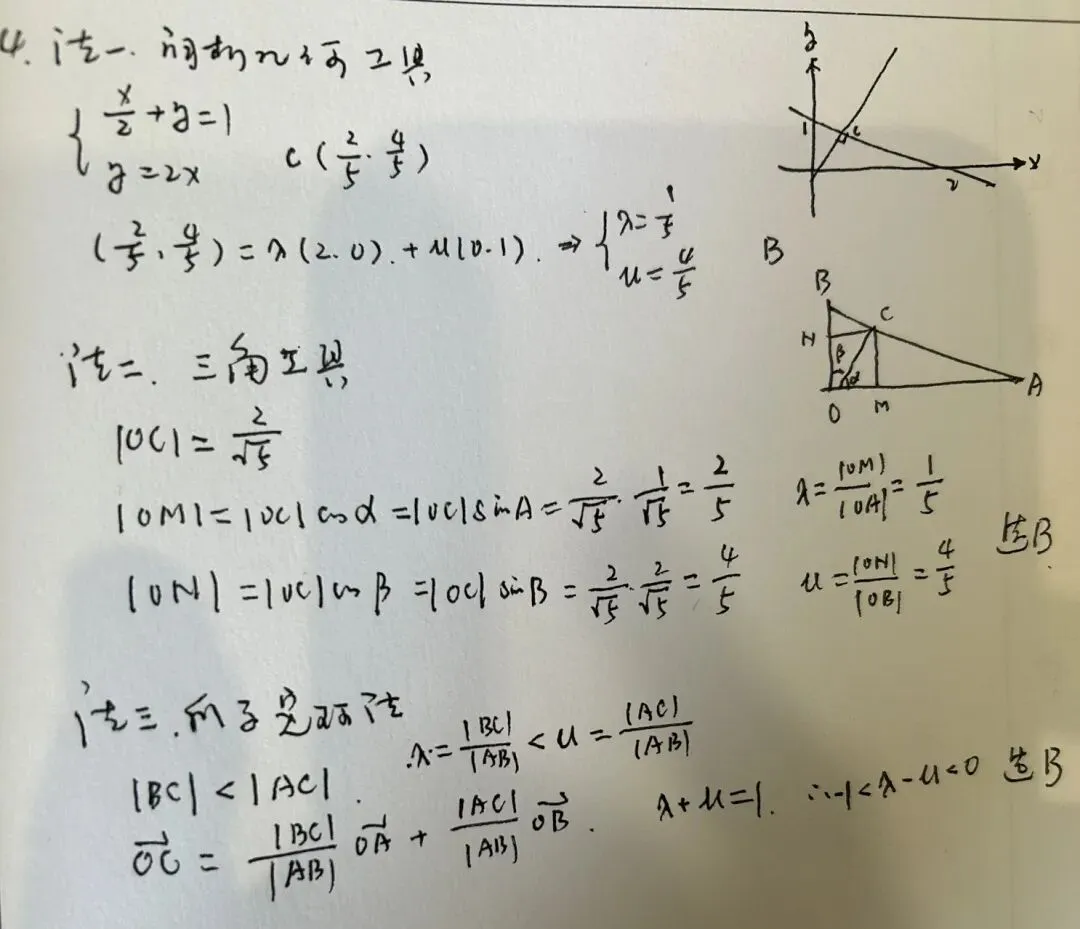 4. 法一. 解析几何工具
{ x/2 + y = 1
y = 2x
C (2/5, 4/5)
(2/5, 4/5) = λ(2.0). + μ(0.1). ⇒ { λ = 1/5
μ = 4/5
B
y
1
C
2
x
法二. 三角工具
|OC| = 2/√5
|OM| = |OC| cos α = |OC| sin A = 2/√5 · 1/√5 = 2/5 λ = |OM|/|OA| = 1/5
|ON| = |OC| cos β = |OC| sin B = 2/√5 · 2/√5 = 4/5 μ = |ON|/|OB| = 4/5
选B.
B
N
C
β
α
O
M
A
法三.
法
|BC| < |AC|.
λ = |BC|/|AB| < μ = |AC|/|AB|
OC⃗ = |BC|/|AB| OA⃗ + |AC|/|AB| OB⃗. λ + μ = 1. ∴ -1 < λ - μ < 0 选B